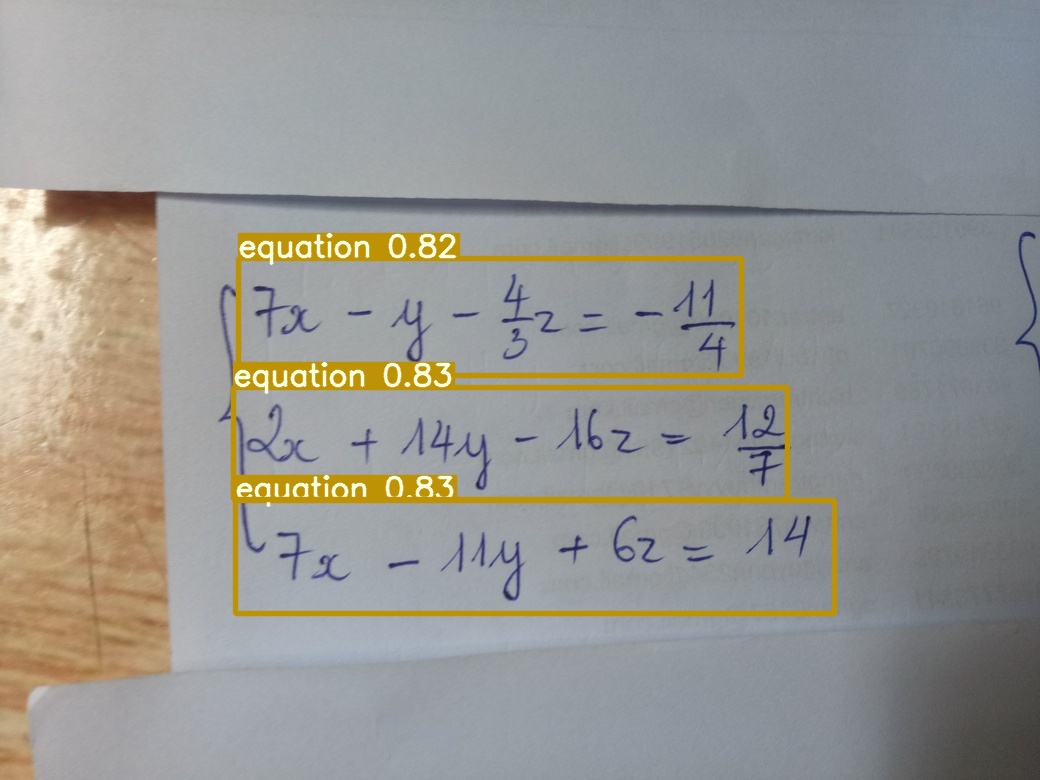 equation 0.82
7x - y - 4/3 z = - 11/4
equation 0.83
2x + 14y - 16z = 12/7
equation 0.83
7x - 11y + 6z = 14